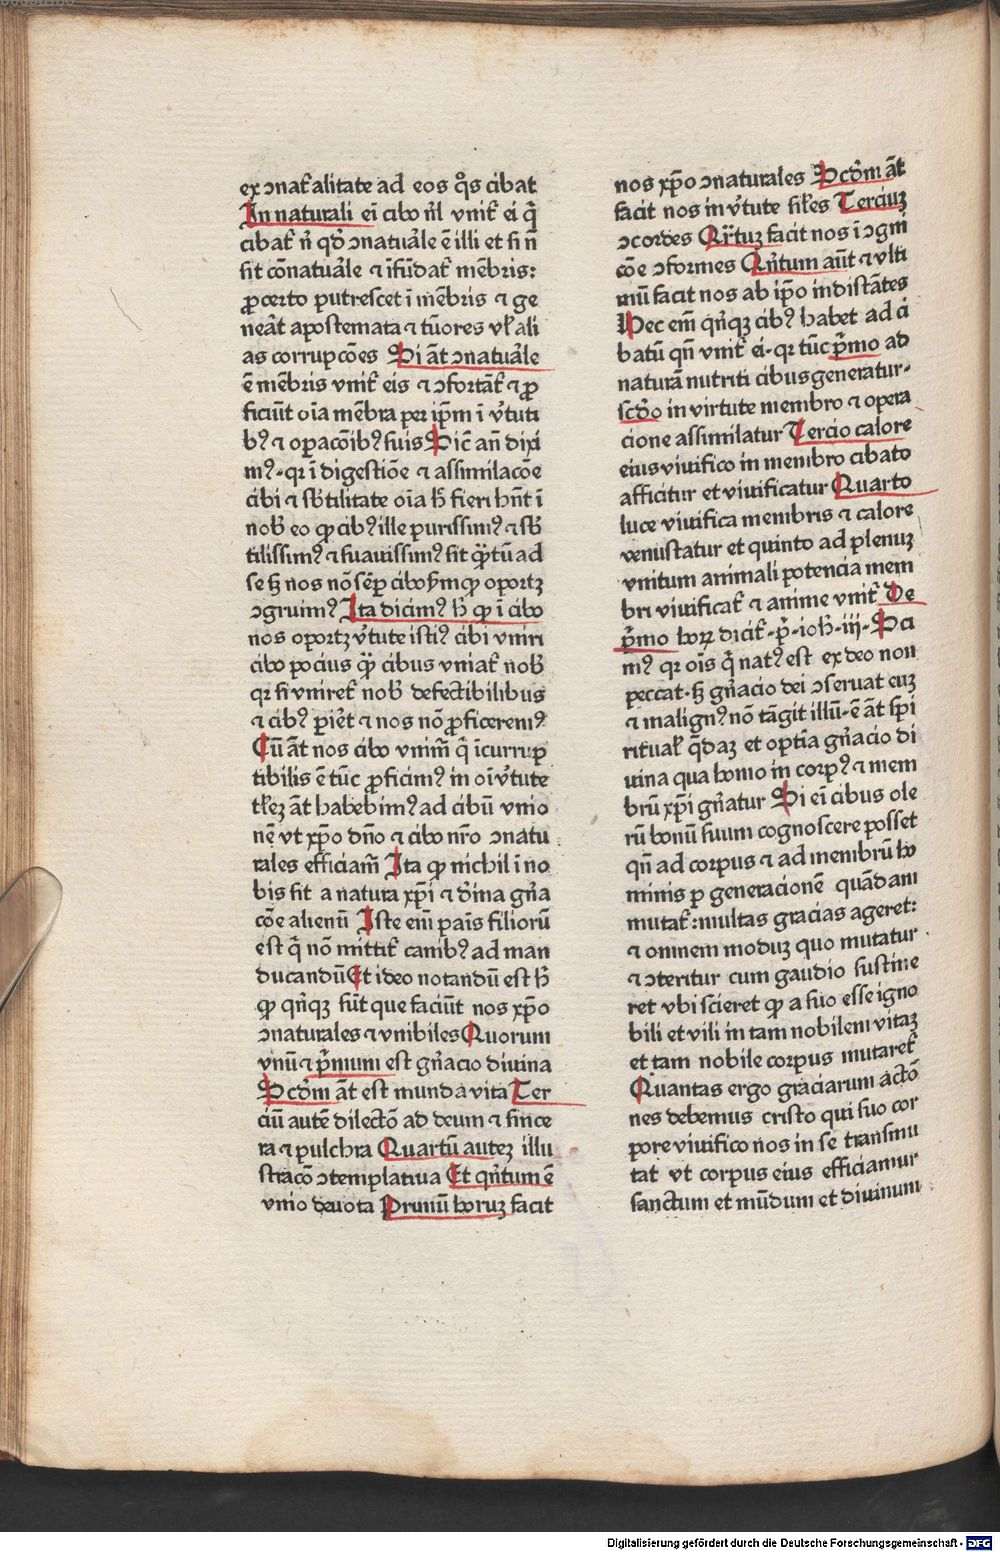 ex ↄnat̃alitate ad eos q̊s cibat
In naturali ei̅ cibo nl̃ vnit̃ ei q̃
cibat̃ n̄ qd̕ ↄnatua̕le ē illi et si n̄
sit cōnatua̕le ⁊ īfūdat̃ mēbris:
ꝓcerto putrescet ī mēbris ⁊ ge
nea̕t apostemata ⁊ tūores vl̕ ali
as corrupcōes Si āt ↄnatua̕le
ē mēbris vnit̃ eis ⁊ ↄfortāt̃ ⁊ ꝓ
ficiūt oīa mēbra per ip̄m ī v̕tuti
bꝰ ⁊ opacōibꝰ suis Sic̄ an̄ dixi
mꝰ· qr ī digestiōe ⁊ assimilacōe
cibi ⁊ sb̕tilitate oīa h̕ fieri hn̄t ī
nob̕ eo ꝙ cibꝰ ille purissimꝰ ⁊ sb̕
tilissimꝰ ⁊ suauissimꝰ sit q̈̄tū ad
se sꝫ nos nō sēꝑ cibo h̕mōi oportꝫ
ↄgruimꝰ Ita dicimꝰ h̕ ꝙ ī cibo
nos oportꝫ v̕tute istiꝰ cibi vniri
cibo pocius q̈̄ cibus vniat̃ nob̕
qr si vniret̃ nob̕ defectibilibus
⁊ cibꝰ piẻt ⁊ nos nō ꝓficeremꝰ
Cū āt nos cibo vnim̃ q̃ īcurrup
tibilis ē tūc ꝓficimꝰ in oī v̕tute
tl̕eꝫ āt habebimꝰ ad cibū vnio
nē vt xp̄o dn̄o ⁊ cibo nr̄o ↄnatu
rales efficiam̃ Ita ꝙ nichil ī no
bis sit a natura xp̄i ⁊ d̕ina gn̄a
cōe alienū Iste eni̅ panis filiorū
est q̃ nō mittit̃ canibꝰ ad man
ducandū Et ideo notandū est h̕
ꝙ qn̄qꝫ sūt que faciūt nos xp̄o
ↄnaturales ⁊ vnibiles Quorum
vnū ⁊ p̃mum est gn̄acio diuina
Scd̕m āt est munda vita Ter
ciū autē dilectō ad deum ⁊ since
ra ⁊ pulchra Quartū auteꝫ illu
stracō ↄtemplatiua Et qn̄tum ē
vnio deuota Primū horuꝫ facit
nos xp̄o ↄnaturales Scd̕m āt
facit nos in v̕tute sil̕es Terciuꝫ
ↄcordes Qr̄tuꝫ facit nos ī ↄgni
cōe ↄformes Qn̄tum aūt ⁊ vlti
mū facit nos ab ip̄o indistātes
Hec eni̅ qn̄qꝫ cibꝰ habet ad ci
batū qn̄ vnit̃ ei· qr tūc p̃mo ad
naturā nutriti cibus generatur·
scd̕o in virtute membro ⁊ opera
cione assimilatur Tercio calore
eius viuifico in membro cibato
afficitur et viuificatur Quarto
luce viuifica membris ⁊ calore
venustatur et quinto ad plenuꝫ
vnitum animali potencia mem
bri viuificat̃ ⁊ anime vnit̃ De
p̃mo hoꝝ dicit̃ · p̃ · ioh̕ · iii · Sci
mꝰ qr oīs q̃ natꝰ est ex deo non
peccat· sꝫ gn̄acio dei ↄseruat euꝫ
⁊ malignꝰ nō tāgit illū· ē āt sp̄i
ritual̕ q̄daꝫ et optīa gn̄acio di
uina qua homo in corpꝰ ⁊ mem
brū xp̄i gn̄atur Si ei̅ cibus ole
rū bonū suum cognoscere posset
qn̄ ad corpus ⁊ ad membrū ho
minis ꝑ generacionē quādam
mutat̃: multas gracias ageret:
⁊ omnem moduꝫ quo mutatur
⁊ ↄteritur cum gaudio sustine
ret vbi scieret ꝙ a suo esse igno
bili et vili in tam nobilem vitaꝫ
et tam nobile corpus mutaret̃
Quantas ergo graciarum actō
nes debemus cristo qui suo cor
pore viuifico nos in se transmu
tat vt corpus eius efficiamur
sanctum et mūdum et diuinum
Digitalisierung gefördert durch die Deutsche Forschungsgemeinschaft - DFG